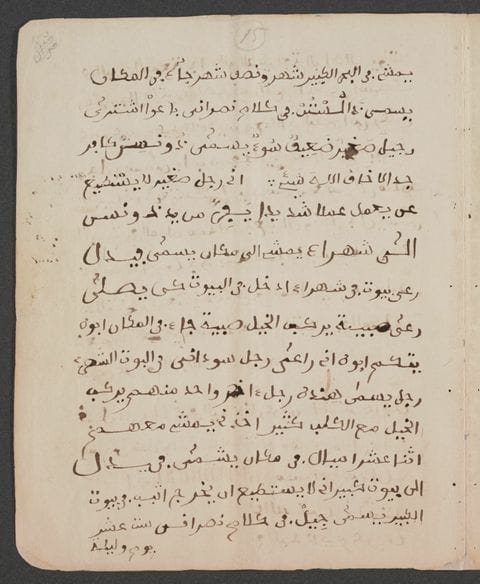 ١٥
يمشي في البحر الكبير شهر ونصف شهر جاء في المكان
يسمى في كلام نصراني باعوا اشترى
رجيل صغير ضعيف سوء يسمى كافر
جدا لا خاف الله شيء اني رجل صغير لا يستطيع
عن يعمل عملا شديدا يفر من يد
الى شهراء يمشي الى مكان يسمى فيدل
رءى بيوت في شهراء ادخل في البيوت كى يصلى
رءى صبية يركب الخيل صبية جاء في المكان ابوه
يتكلم ابوه اني راءى رجل سوداني في البوت
رجل يسمى هندة رجل ءاخر واحد منهم يركب
الخيل مع الكلب كثير اخذني يمشي معهم
اثنا عشر اميال في مكان يسمى فيدل
الى بيوت كبير اني لا يستطيع ان يخرج في بيوت
الكبير يسمى جيل في كلام نصراني ست عشر
يوم وليلة